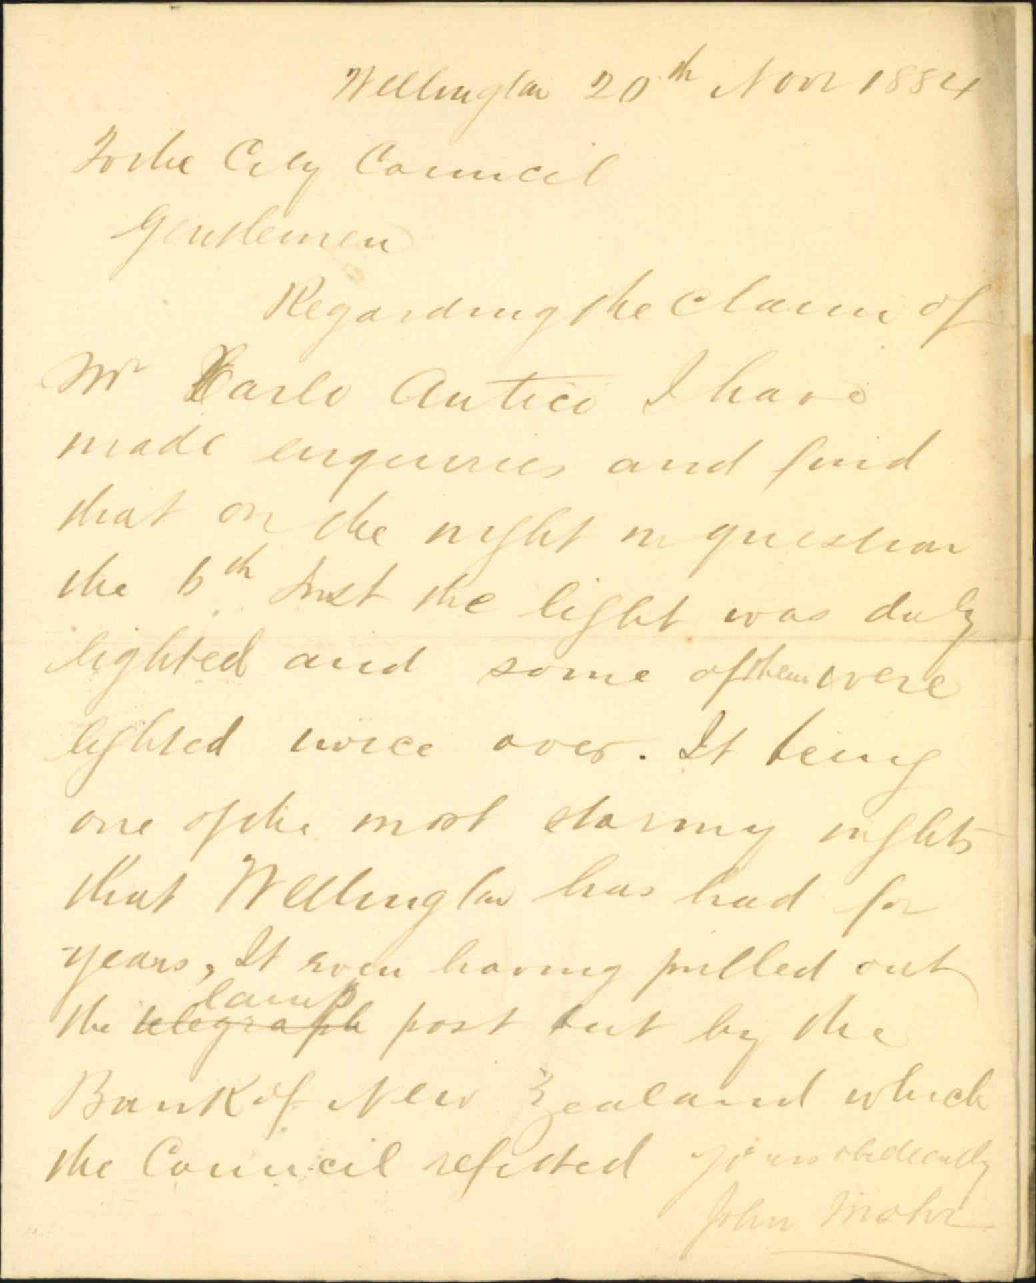 Wellington 20th Novr 1884
To the City Council
Gentlemen
Regarding the claim of
Mr Carlo Antico I have
made enquiries and find
that on the night in question
the 6th Inst the light was duly
lighted and some of them were
lighted twice over. It being
one of the most stormy nights
that Wellington has had for
years, It even having pulled out
lamp
the telegraph post put by the
Bank of New Zealand which
the Council refitted yours obediently
John Mohr